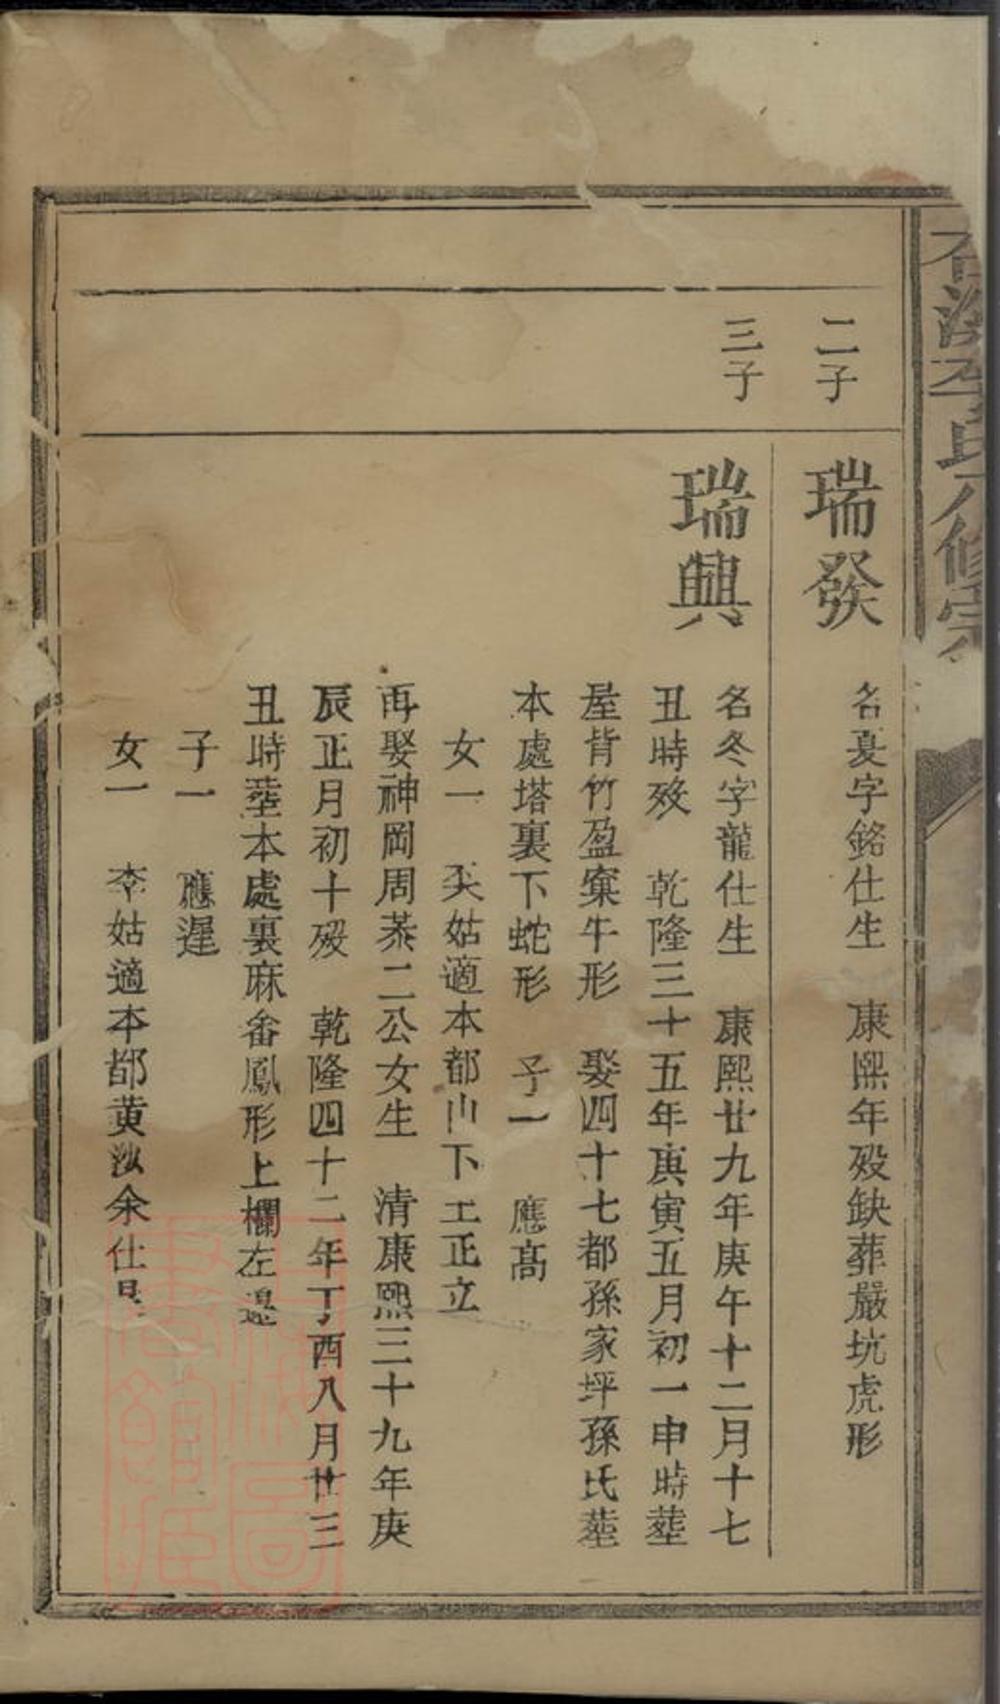 李氏 修宗
二子
瑞發
名夏字銘仕生 康熙年殁缺葬嚴坑虎形
三子
瑞興
名冬字龍仕生 康熙廿九年庚午十二月十七
丑時殁 乾隆三十五年庚寅五月初一申時塟
屋背竹盈窠牛形 娶四十七都孫家坪孫氏塟
本處塔裏下蛇形 子一 應高
女一 姑適本都山下王正立
再娶神岡周 二公女生 清康熙三十九年庚
辰正月初十殁 乾隆四十二年丁酉八月廿三
丑時塟本處裏麻畬鳳形上欄左邊
子一 應遲
女一 李姑適本都黄沙余仕